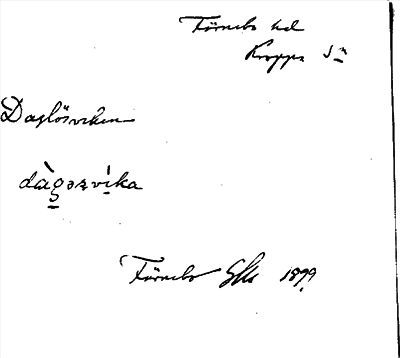 Färnebo hd
Kroppa Sn
Daglösviken
dàgəzvíka
Färnebo Gls 1899